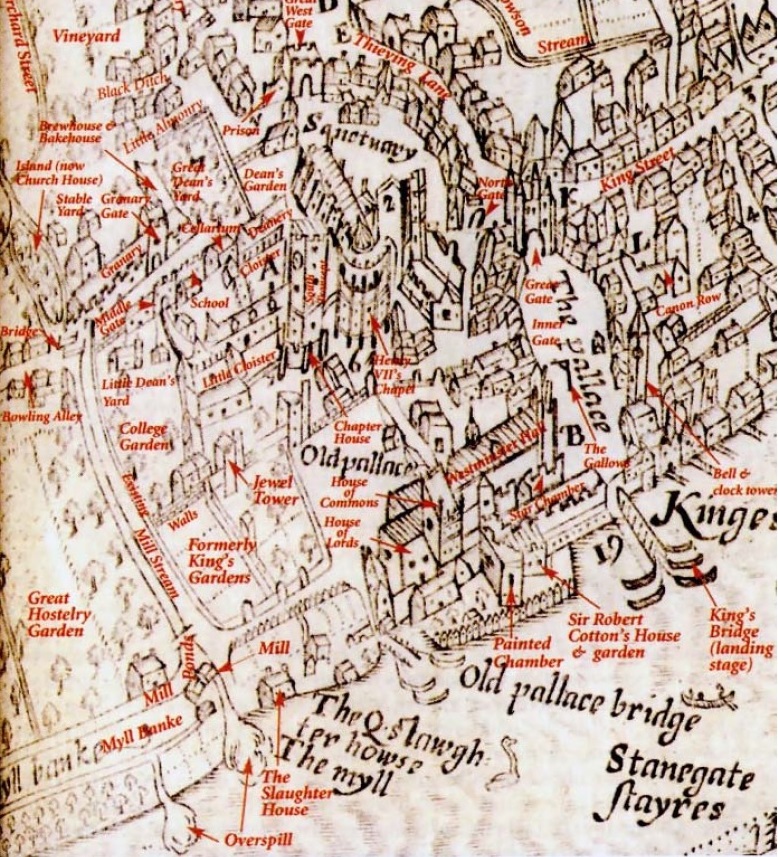 Great
West
Gate
D
Orchard Street
Vineyard
E
Thieving Lane
Stream
Black Ditch
Little Almonry
Prison
Sanctuary
Brewhouse &
Bakehouse
Island (now
Church House)
Great
Dean's
Yard
Dean's
Garden
Stable
Yard
Granary
Gate
2
North
Gate
F
King Street
Cellarium
Deanery
Cloister
A
L
4
Granary
School
Great
Gate
Inner
Gate
The pallace
Canon Row
Middle
Gate
Bridge
Little Cloister
6
Henry
VII's
Chapel
Little Dean's
Yard
Bowling Alley
Chapter
House
College
Garden
B
The
Gallows
Bell &
clock tower
Old pallace
Westminster Hall
Jewel
Tower
House
of
Commons
Star Chamber
Existing
Walls
House
of
Lords
Kinges
19
Mill Stream
Formerly
King's
Gardens
Great
Hostelry
Garden
Painted
Chamber
Sir Robert
Cotton's House
& garden
King's
Bridge
(landing
stage)
Mill
Bonds
Mill
Old pallace bridge
Myll Banke
yll banke
The Q slawgh
ter howse
The myll
Stanegate
stayres
The
Slaughter
House
Overspill